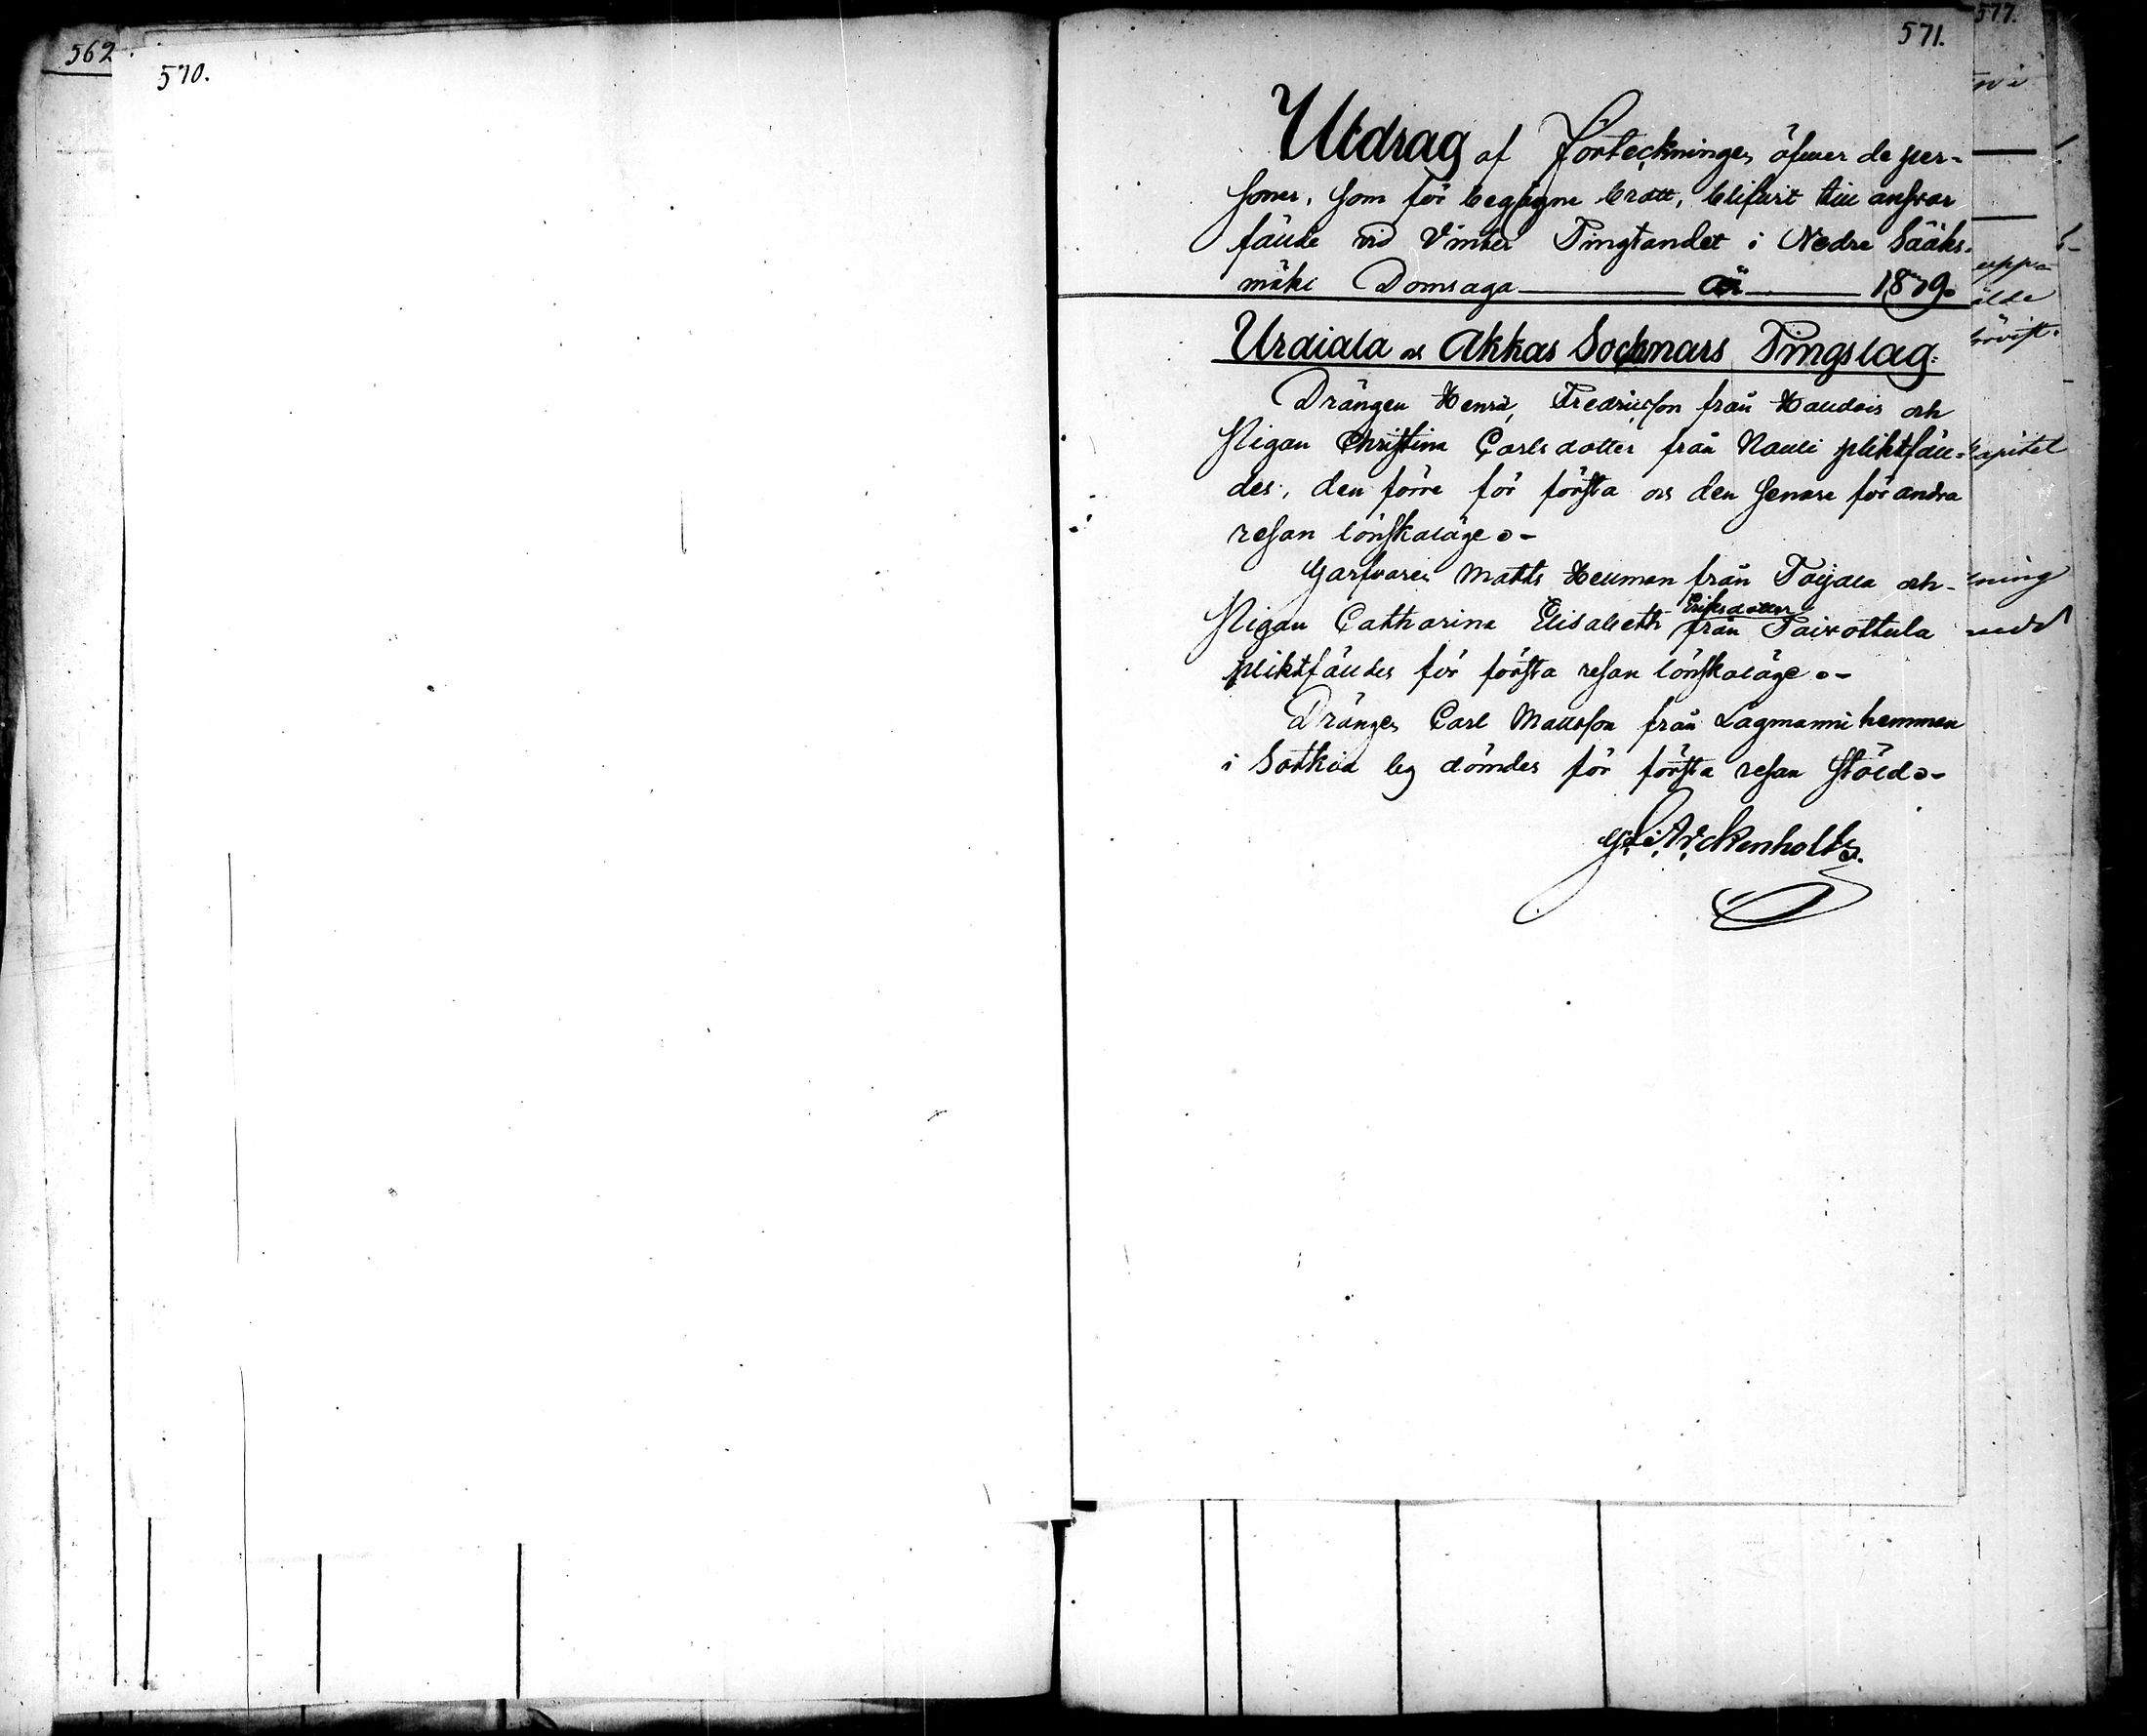 562
570.
571.
577.
Utdrag af Förteckningen öfwer de per-
soner, som för begågne brott, blifwit till answar
fälde vid Vinter Tingtandet i Nedre Sääks-
mäki Domsaga År 1879.
Urdiala och Akkas Socknars Tingslag:
Drängen Henric Fredricsson från och
Pigan Christina Carlsdotter från Nauli pliktfäll-
des, den förre för första och den senare för andra
resan lönskaläge.-
Garfvaren Matts Heuman från Toijala och
Pigan Catharina Elisabeth Eriksdotter från Taipottula
pliktfälldes för första resan lönskaläge.-
Drängen Carl Mattsson från Lagmanni hemman
i Sotkia by dömdes för första resan stöld.-
G. Arckenholtz.
uppa
älde
Capitel
ning
med